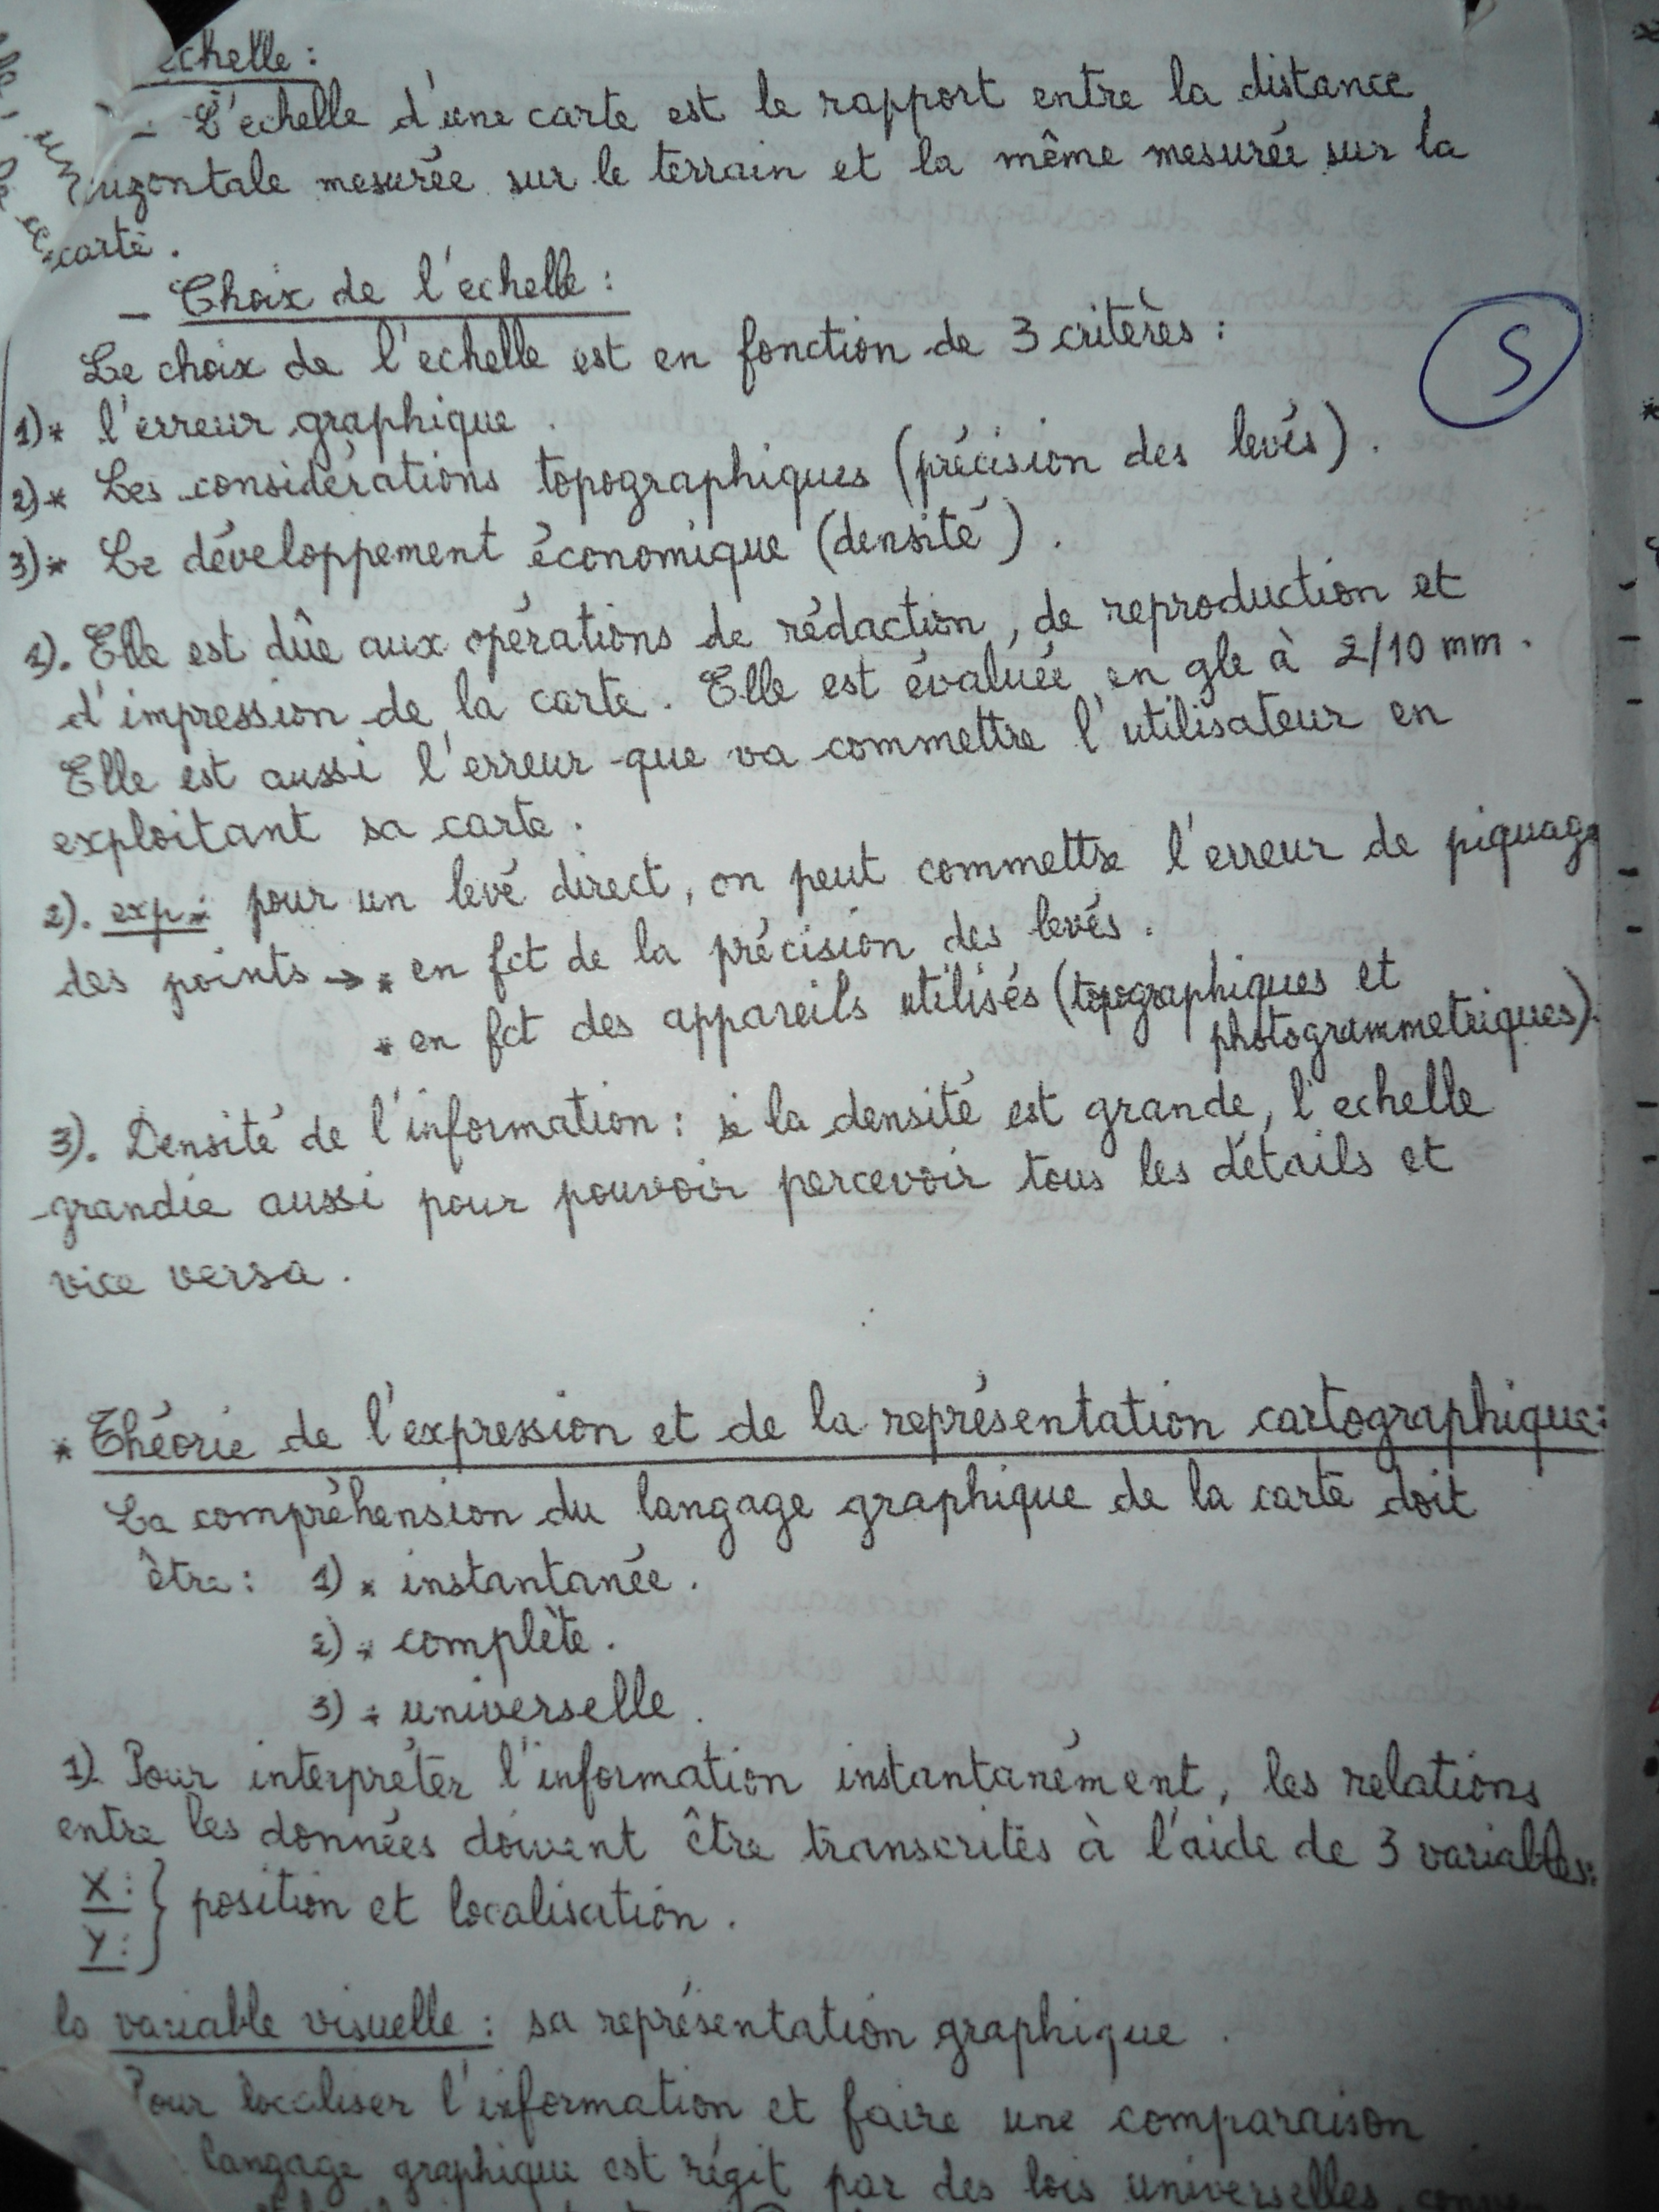 echelle :
- L'echelle d'une carte est le rapport entre la distance
horizontale mesurée sur le terrain et la même mesurée sur la
carte.
- Choix de l'echelle :
Le choix de l'echelle est en fonction de 3 critères :
S
1)* l'erreur graphique.
2)* Les considérations topographiques (précision des levés).
3)* Le développement économique (densité).
1). Elle est dûe aux opérations de rédaction, de reproduction et
d'impression de la carte. Elle est évaluée en gle à 2/10 mm.
Elle est aussi l'erreur que va commettre l'utilisateur en
exploitant sa carte.
2). exp : pour un levé direct, on peut commettre l'erreur de piquage
des points → * en fct de la précision des levés.
* en fct des appareils utilisés (topographiques et
photogrammetriques).
3). Densité de l'information : si la densité est grande, l'echelle
grandie aussi pour pouvoir percevoir tous les détails et
vice versa.
* Théorie de l'expression et de la représentation cartographique :
La compréhension du langage graphique de la carte doit
être : 1) * instantanée.
2) * complète.
3) * universelle.
1). Pour interpréter l'information instantanément, les relations
entre les données doivent être transcrites à l'aide de 3 variables :
X : } position et localisation.
Y :
la variable visuelle : sa représentation graphique.
Pour localiser l'information et faire une comparaison
langage graphique est régit par des lois universelles